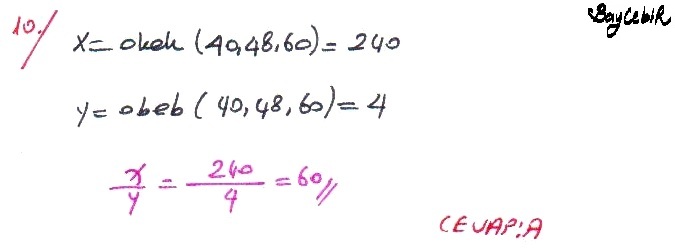 BayCebiR
10./ x = okek (40,48,60) = 240
y = obeb (40,48,60) = 4
x/y = 240/4 = 60//
CEVAP:A